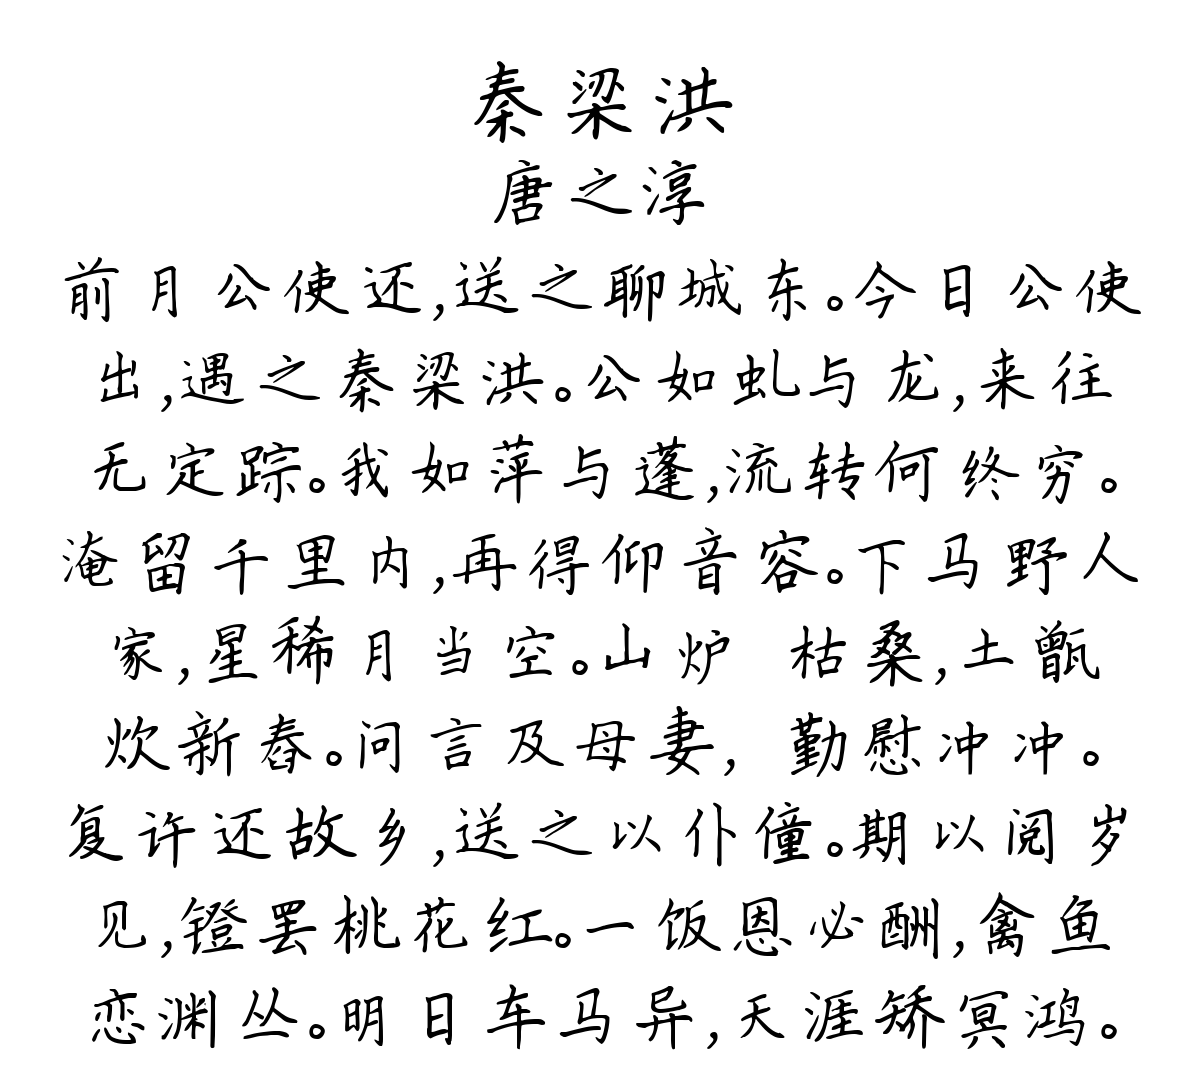 秦梁洪
唐之淳
前月公使还,送之聊城东。今日公使
出,遇之秦梁洪。公如虬与龙,来往
无定踪。我如萍与蓬,流转何终穷。
淹留千里内,再得仰音容。下马野人
家,星稀月当空。山炉 枯桑,土甑
炊新舂。问言及母妻, 勤慰冲冲。
复许还故乡,送之以仆僮。期以阅岁
见,镫罢桃花红。一饭恩必酬,禽鱼
恋渊丛。明日车马异,天涯矫冥鸿。